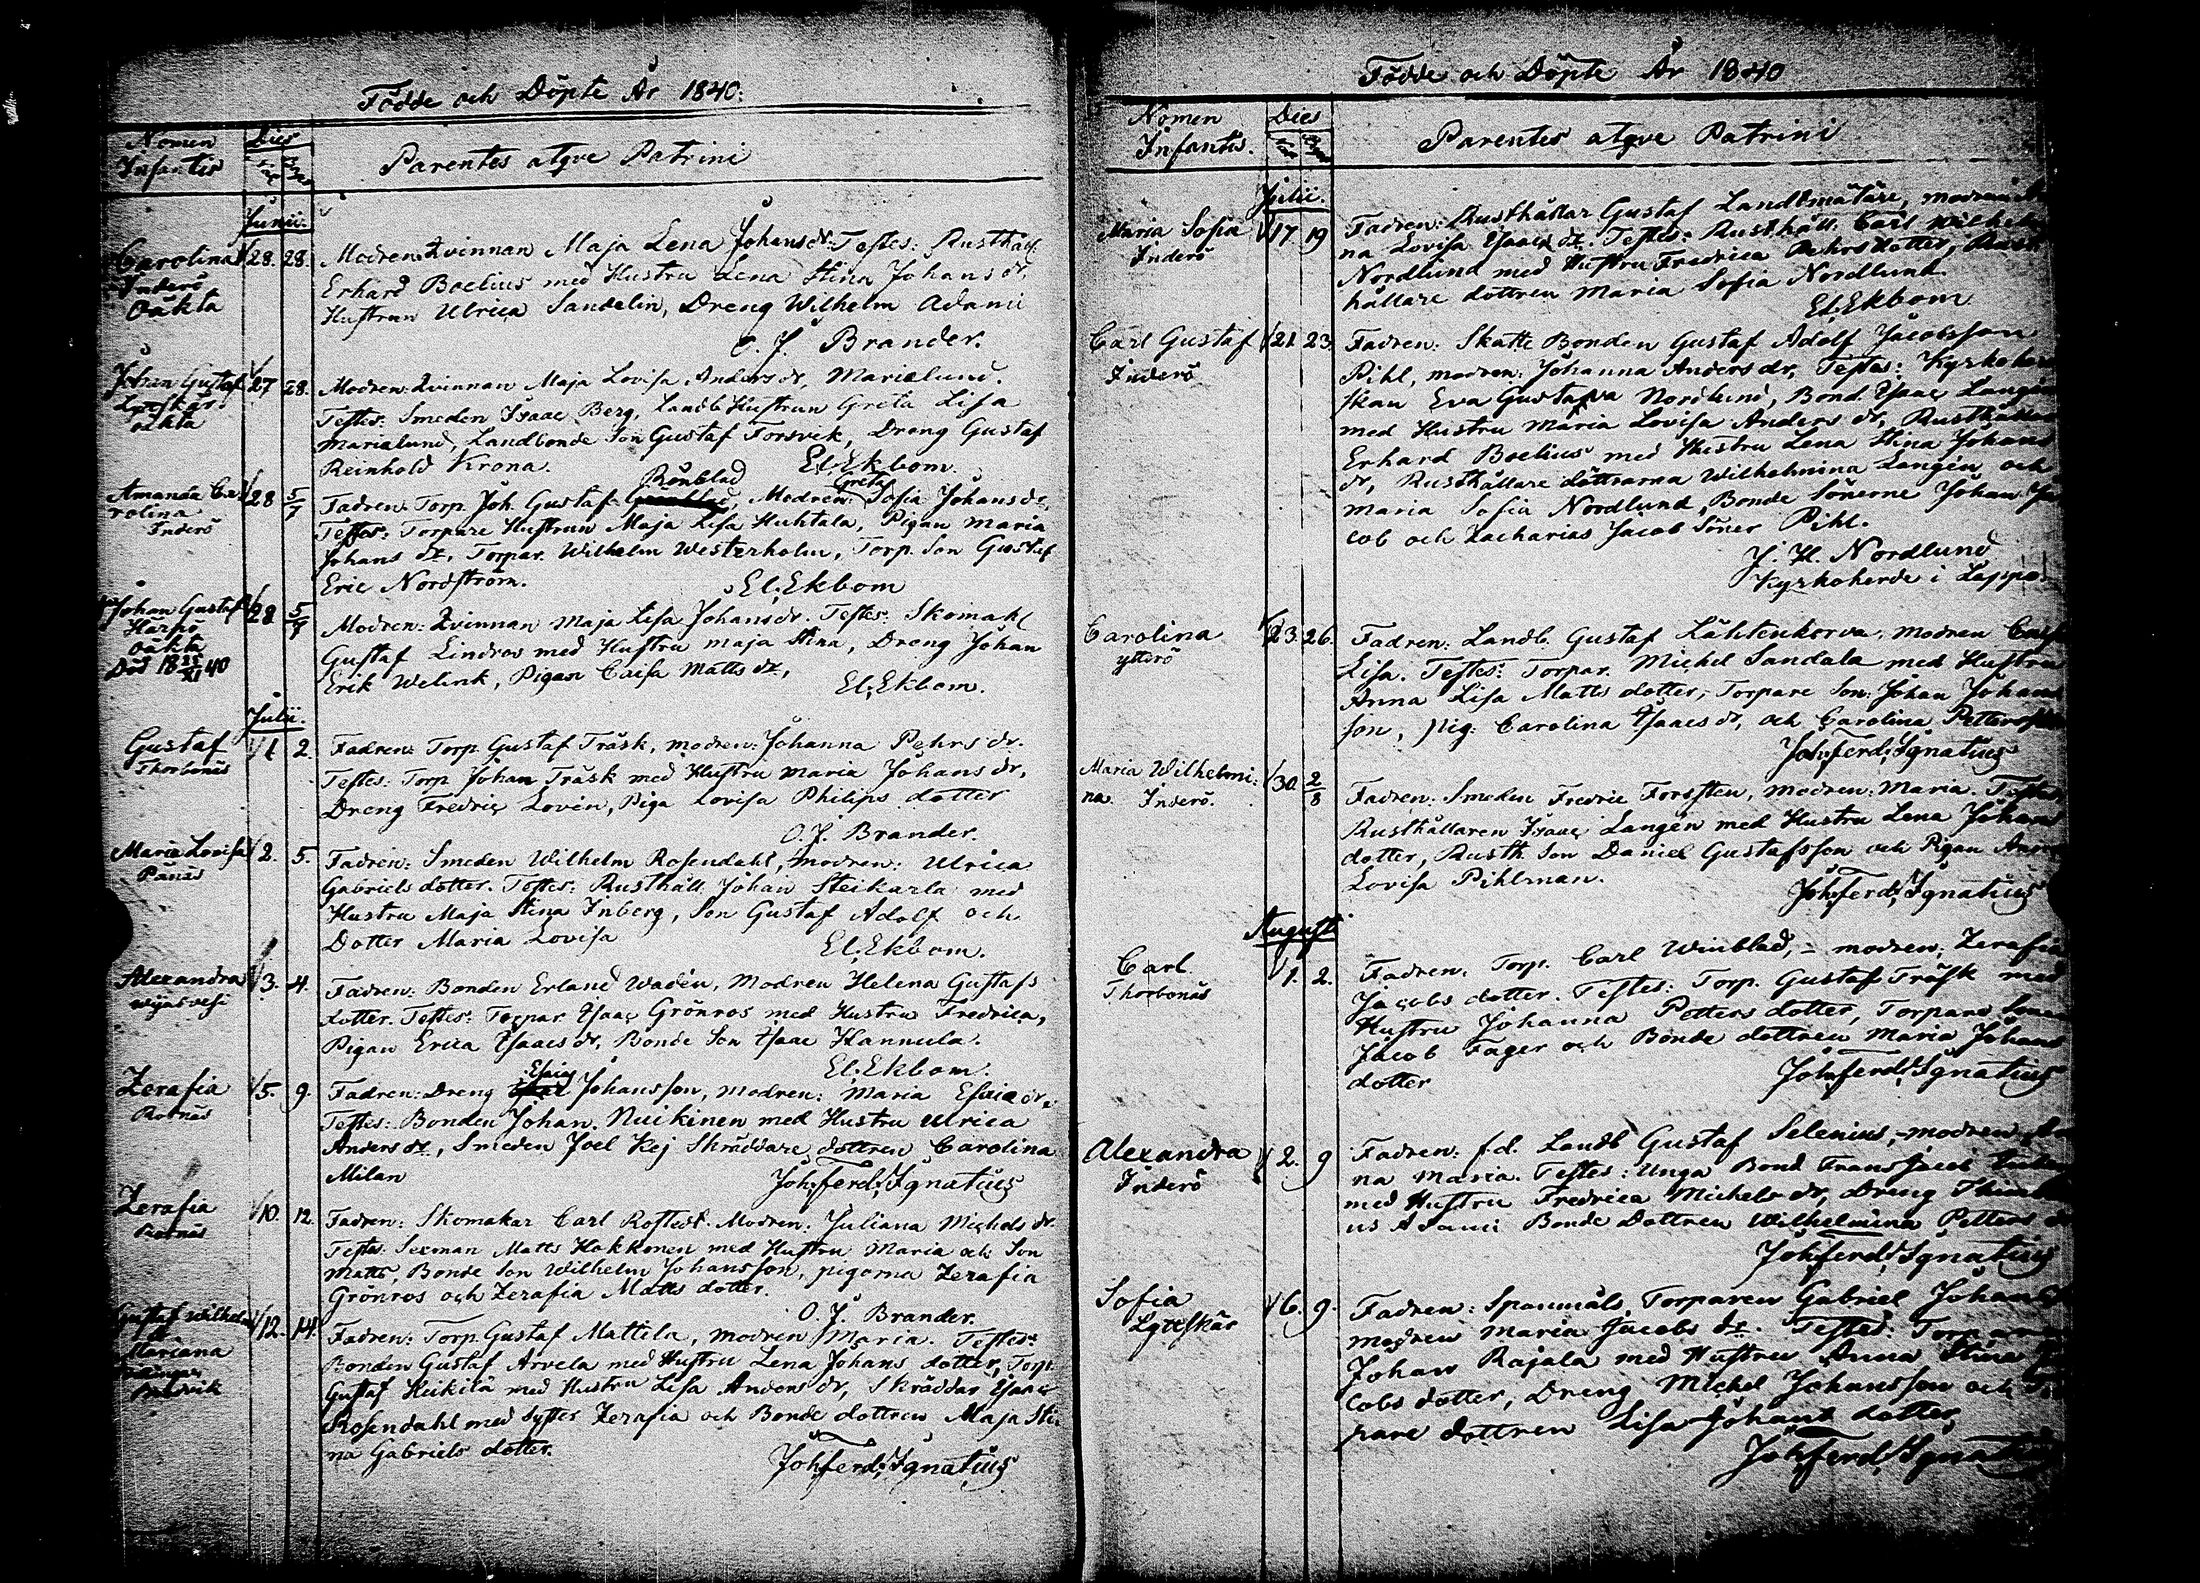 Födde och Döpte År 1840.
Nomen Infantis
Dies
Parentes atqve Patrini
Junii.
Carolina
Inderö
Oäkta
28. 28.
Modren: Qvinnan Maja Lena Johansdr. Testes: Rusthåll
Erhard Boelius med Hustru Lena Stina Johans dr.
Hustrun Ulrica Sandelin, Dreng Wilhelm Adami
O. J. Brander.
Johan Gustaf
oäkta
27 28.
Modren: Qvinnan Maja Lovisa Anders dr, Marielund.
Testes: Smeden Isaac Berg, Landb. Hustrun Greta Lisa
Marialund, Landbonde Son Gustaf Forsvik, Dreng Gustaf
Reinhold Krona.
El. Ekbom.
Amanda Ca-
rolina
Inderö
28 5/7
Rönblad Greta
Fadren: Torp. Joh. Gustaf Modren: Sofia Johansdr,
Testes: Torpare Hustrun Maja Lisa Huhtala, Pigan Maria
Johans dr, Torpar. Wilhelm Westerholm, Torp. Son Gustaf
Eric Nordström.
El. Ekbom
Johan Gustaf
Härpö
oäkta
Död 40
28 5/7
Modren: Qvinnan Maja Lisa Johansdr. Testes: Skomak.
Gustaf Lindros med Hustru Maja Stina, Dreng Johan
Erik Welink, Pigan Caisa Matts dr,
El. Ekbom.
Julii.
Gustaf
Thorbonäs
1 2.
Fadren: Torp. Gustaf Träsk, modren: Johanna Pehrs dr.
Testes: Torp Johan Träsk med Hustru Maria Johans dr,
Dreng Fredric Lovén, Piga Lovisa Philips dotter
O. J. Brander.
Maria Lovisa
Pänäs
2. 5.
Fadren: Smeden Wilhelm Rosendahl, modren: Ulrica
Gabriels dotter. Testes: Rusthåll. Johan Steikarla med
Hustru Maja Stina Inberg, Son Gustaf Adolf och
Dotter Maria Lovisa
El. Ekbom.
Alexandra
Wijasvesi
3. 4.
Fadren: Bonden Erland Wadén, Modren Helena Gustafs
dotter. Testes: Torpar. Isaac Grönros med Hustru Fredrica,
Pigan Erica Isaacs dr, Bonde Son Isaac Hannula.
El. Ekbom.
Zerafia
Rornäs
5. 9.
Esaias
Fadren: Dreng Johansson, modren: Maria Esaiædr.
Testes: Bonden Johan Nuikinen med Hustru Ulrica
Anders dr, Smeden Joel Kej Skräddare dottren Carolina
Milan
Joh. Ferd. Ignatius
Zerafia
Rornäs
10. 12.
Fadren: Skomakar Carl Rostedt. Modren: Juliana Michels dr.
Testes. Sexman Matts Hakkonen med Hustru Maria och Son
Matts, Bonde Son Wilhelm Johansson, pigorna Zerafia
Grönros och Zerafia Matts dotter.
O. J. Brander.
Gustaf Wilhelm
Mariana
12. 14.
Fadren: Torp. Gustaf Mattila, modren Maria. Testes:
Bonden Gustaf Arvela med Hustru Lena Johans dotter, Torp.
Gustaf Heikilä med Hustru Lisa Anders dr, Skräddar. Isaac
Rosendahl med Syster Zerafia och Bonde dottren Maja Sti-
na Gabriels dotter.
Joh. Ferd. Ignatius
Födde och Döpte År 1840
Nomen Infantis.
Dies
Parentes atqve Patrini
Julii.
Maria Sofia
Inderö
17 19
Fadren: Rusthållar Gustaf Landtmätare, modren
na Lovisa Isaacs dr. Testes: Rusthåll. Carl Wilhelm
Nordlund med Hustru Fredrica Pehrsdotter, Rust-
hållare dottren Maria Sofia Nordlund.
El. Ekbom
Carl Gustaf
Inderö
21 23.
Fadren: Skatte Bonden Gustaf Adolf Jacobsson
Pihl, modren: Johanna Anders dr, Testes: Kyrkoher
skan Eva Gustafva Nordlund, Bond. Isaac Langén
med Hustru Maria Lovisa Anders dr, Rusthållar
Erhard Boelius med Hustru Lena Stina Johans
dr, Rusthållare döttrarna Wilhelmina Langén och
Maria Sofia Nordlund, Bonde Sönerne Johan Ja
cob och Zacharias Jacob Söner Pihl.
J. H. Nordlund
Kyrkoherde i Lappo.
Carolina
ytterö
23. 26.
Fadren: Landb. Gustaf Lähtenkorva, modren Caisa
Lisa. Testes: Torpar. Michel Sandala med Hustru
Anna Lisa Matts dotter, Torpare Son: Johan Johans
son, pig: Carolina Isaacs dr, och Carolina
Joh. Ferd. Ignatius
Maria Wilhelmi:
na. Inderö.
30. 2/8
Fadren: Smeden Fredric Forssten, modren: Maria. Testes,
Rusthållaren Isaac Langén med Hustru Lena Johans
dotter, Rusth. Son Daniel Gustafsson och Pigan
Lovisa Pihlman.
Joh. Ferd. Ignatius
Augusti
Carl
Thorbonäs
1. 2.
Fadren. Torp. Carl Winblad, - modren: Zerafia
Jacobs dotter. Testes: Torp. Gustaf Träsk med
Hustru Johanna Petters dotter, Torpare Sonen
Jacob Fager och Bonde dottren Maria Johans
dotter
Joh. Ferd. Ignatius
Alexandra
Inderö
2. 9
Fadren: f.d. Landb Gustaf Selenius, - modren
na Maria. Testes: Unga Bond. Frans Jacob
med Hustru Fredrica Michels dr, Dreng
us Adami Bonde Dottren Wilhelmina Petters
Joh. Ferd. Ignatius
Sofia
6. 9.
Fadren: Spanmåls Torparen Gabriel Johans
modren Maria Jacobs dr. Testes: Torpare
Johan Rajala med Hustru Anna Stina Ja
cobs dotter, Dreng Michel Johansson och Tor
pare dottren Lisa Johans dotter,
Joh. Ferd. Ignatius